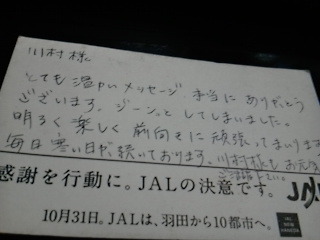 川村様
とても温かいメッセージ 本当にありがとう
ございます。ジーンとしてしまいました。
明るく楽しく前向きに頑張ってまいります
毎日寒い日が続いております。川村様もお元気で
感謝を行動に。JALの決意です。
10月31日。JALは、羽田から10都市へ。